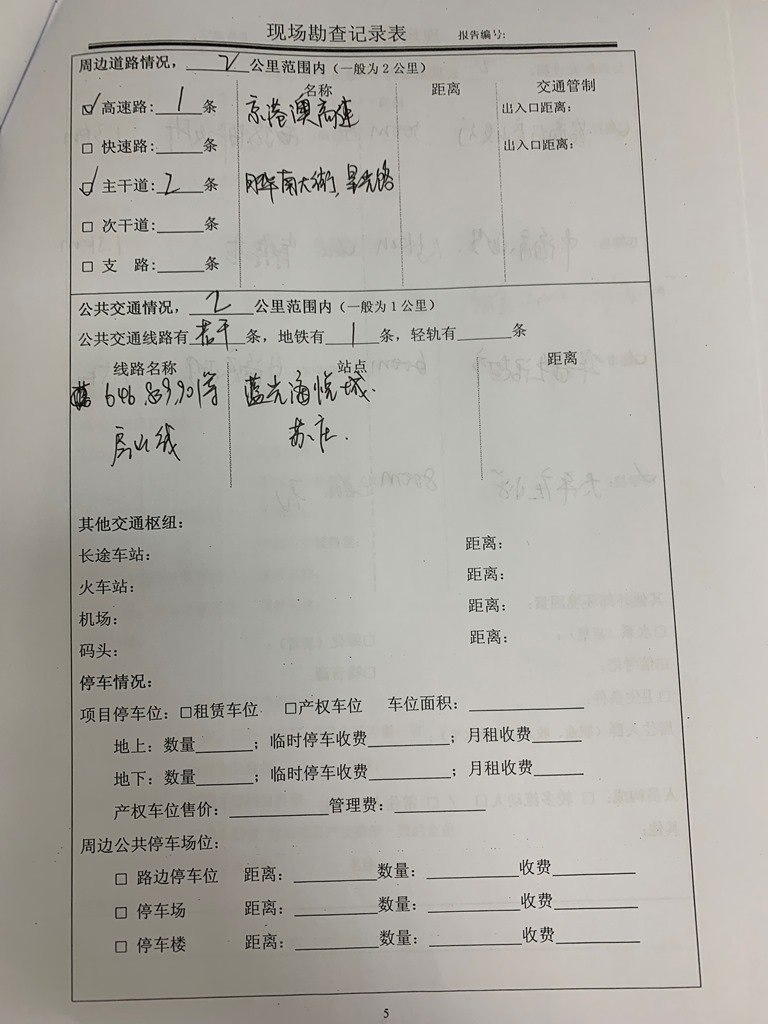 现场勘查记录表 报告编号:
周边道路情况，2公里范围内（一般为2公里）
名称 距离 交通管制
☑ 高速路: 1 条 京港澳高速 出入口距离:
□ 快速路:____条 出入口距离:
☑ 主干道: 2 条 南大街,
□ 次干道:____条
□ 支 路:____条
公共交通情况，2公里范围内（一般为1公里）
公共交通线路有若干条，地铁有 1 条，轻轨有____条
线路名称 站点 距离
646, 839, 901等 蓝光海悦城.
房山线 苏庄.
其他交通枢纽:
长途车站: 距离:
火车站: 距离:
机场: 距离:
码头: 距离:
停车情况:
项目停车位: □租赁车位 □产权车位 车位面积:____
地上: 数量____; 临时停车收费____; 月租收费____
地下: 数量____; 临时停车收费____; 月租收费____
产权车位售价:____管理费:____
周边公共停车场位:
□ 路边停车位 距离:____数量:____收费____
□ 停车场 距离:____数量:____收费____
□ 停车楼 距离:____数量:____收费____
5